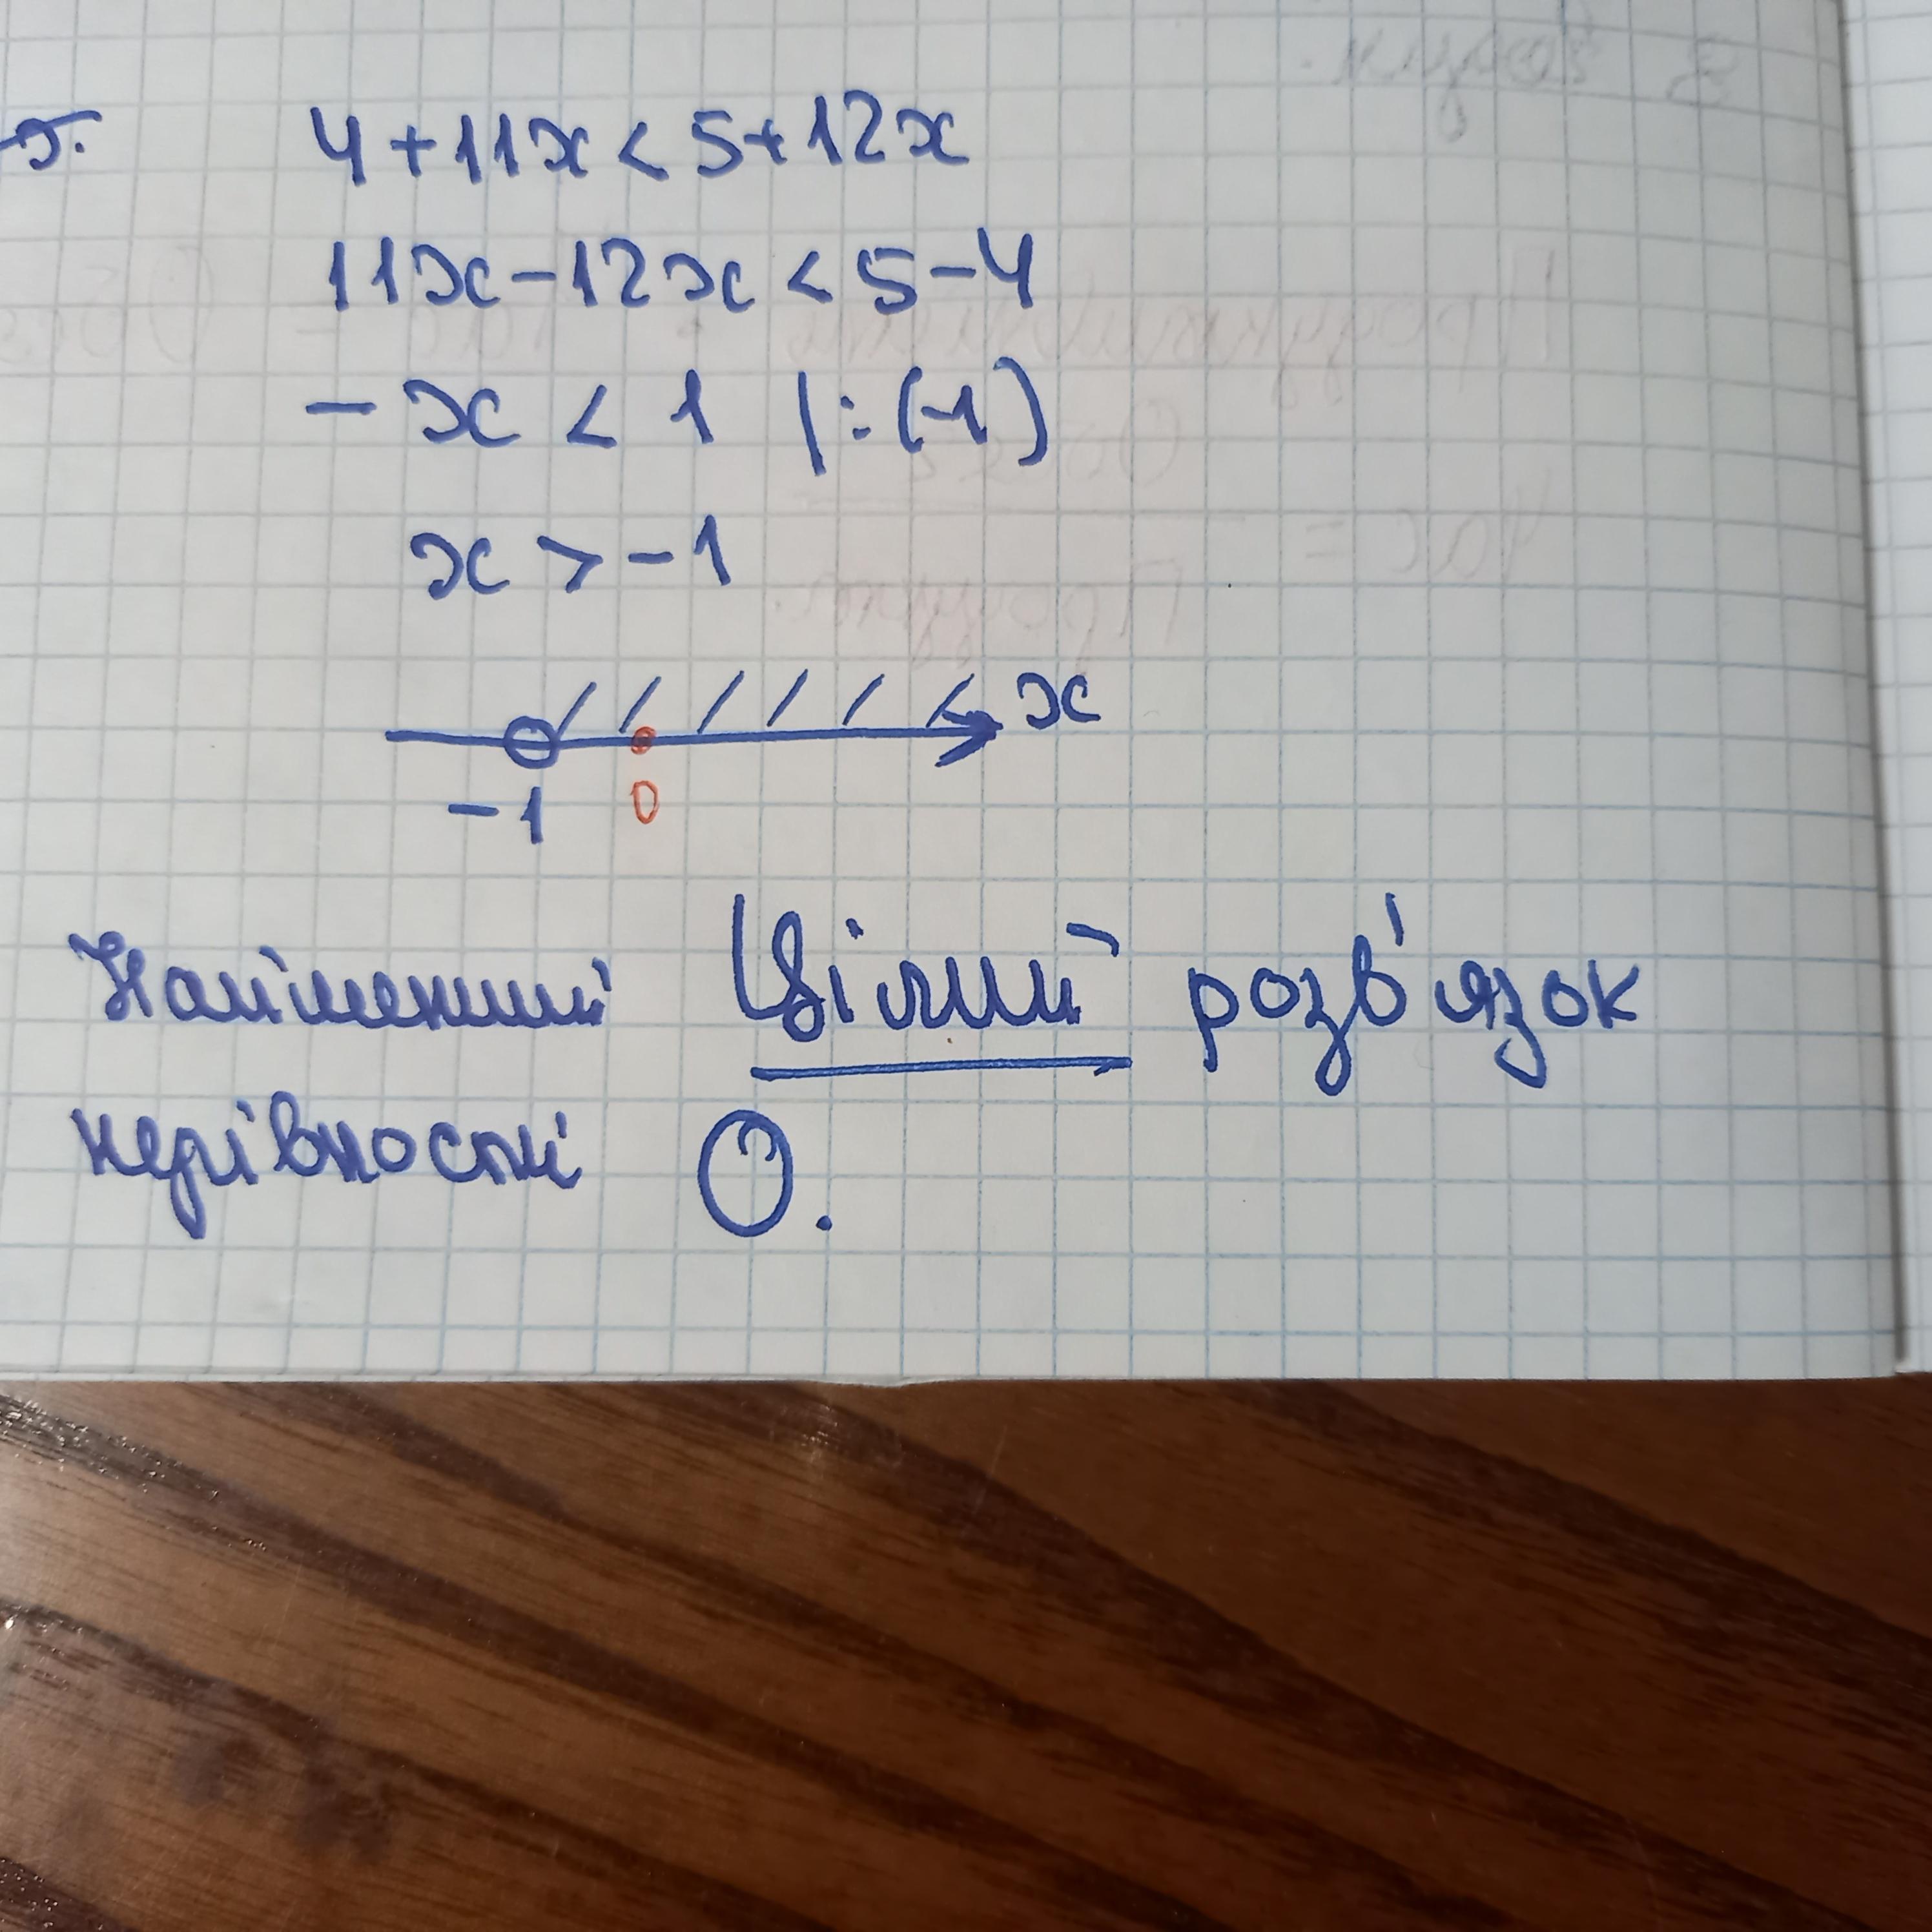 4+11x<5+12x
11x-12x<5-4
-x<1 |:(-1)
x>-1
x
-1 0
Найменший цілий розв'язок
нерівності 0.